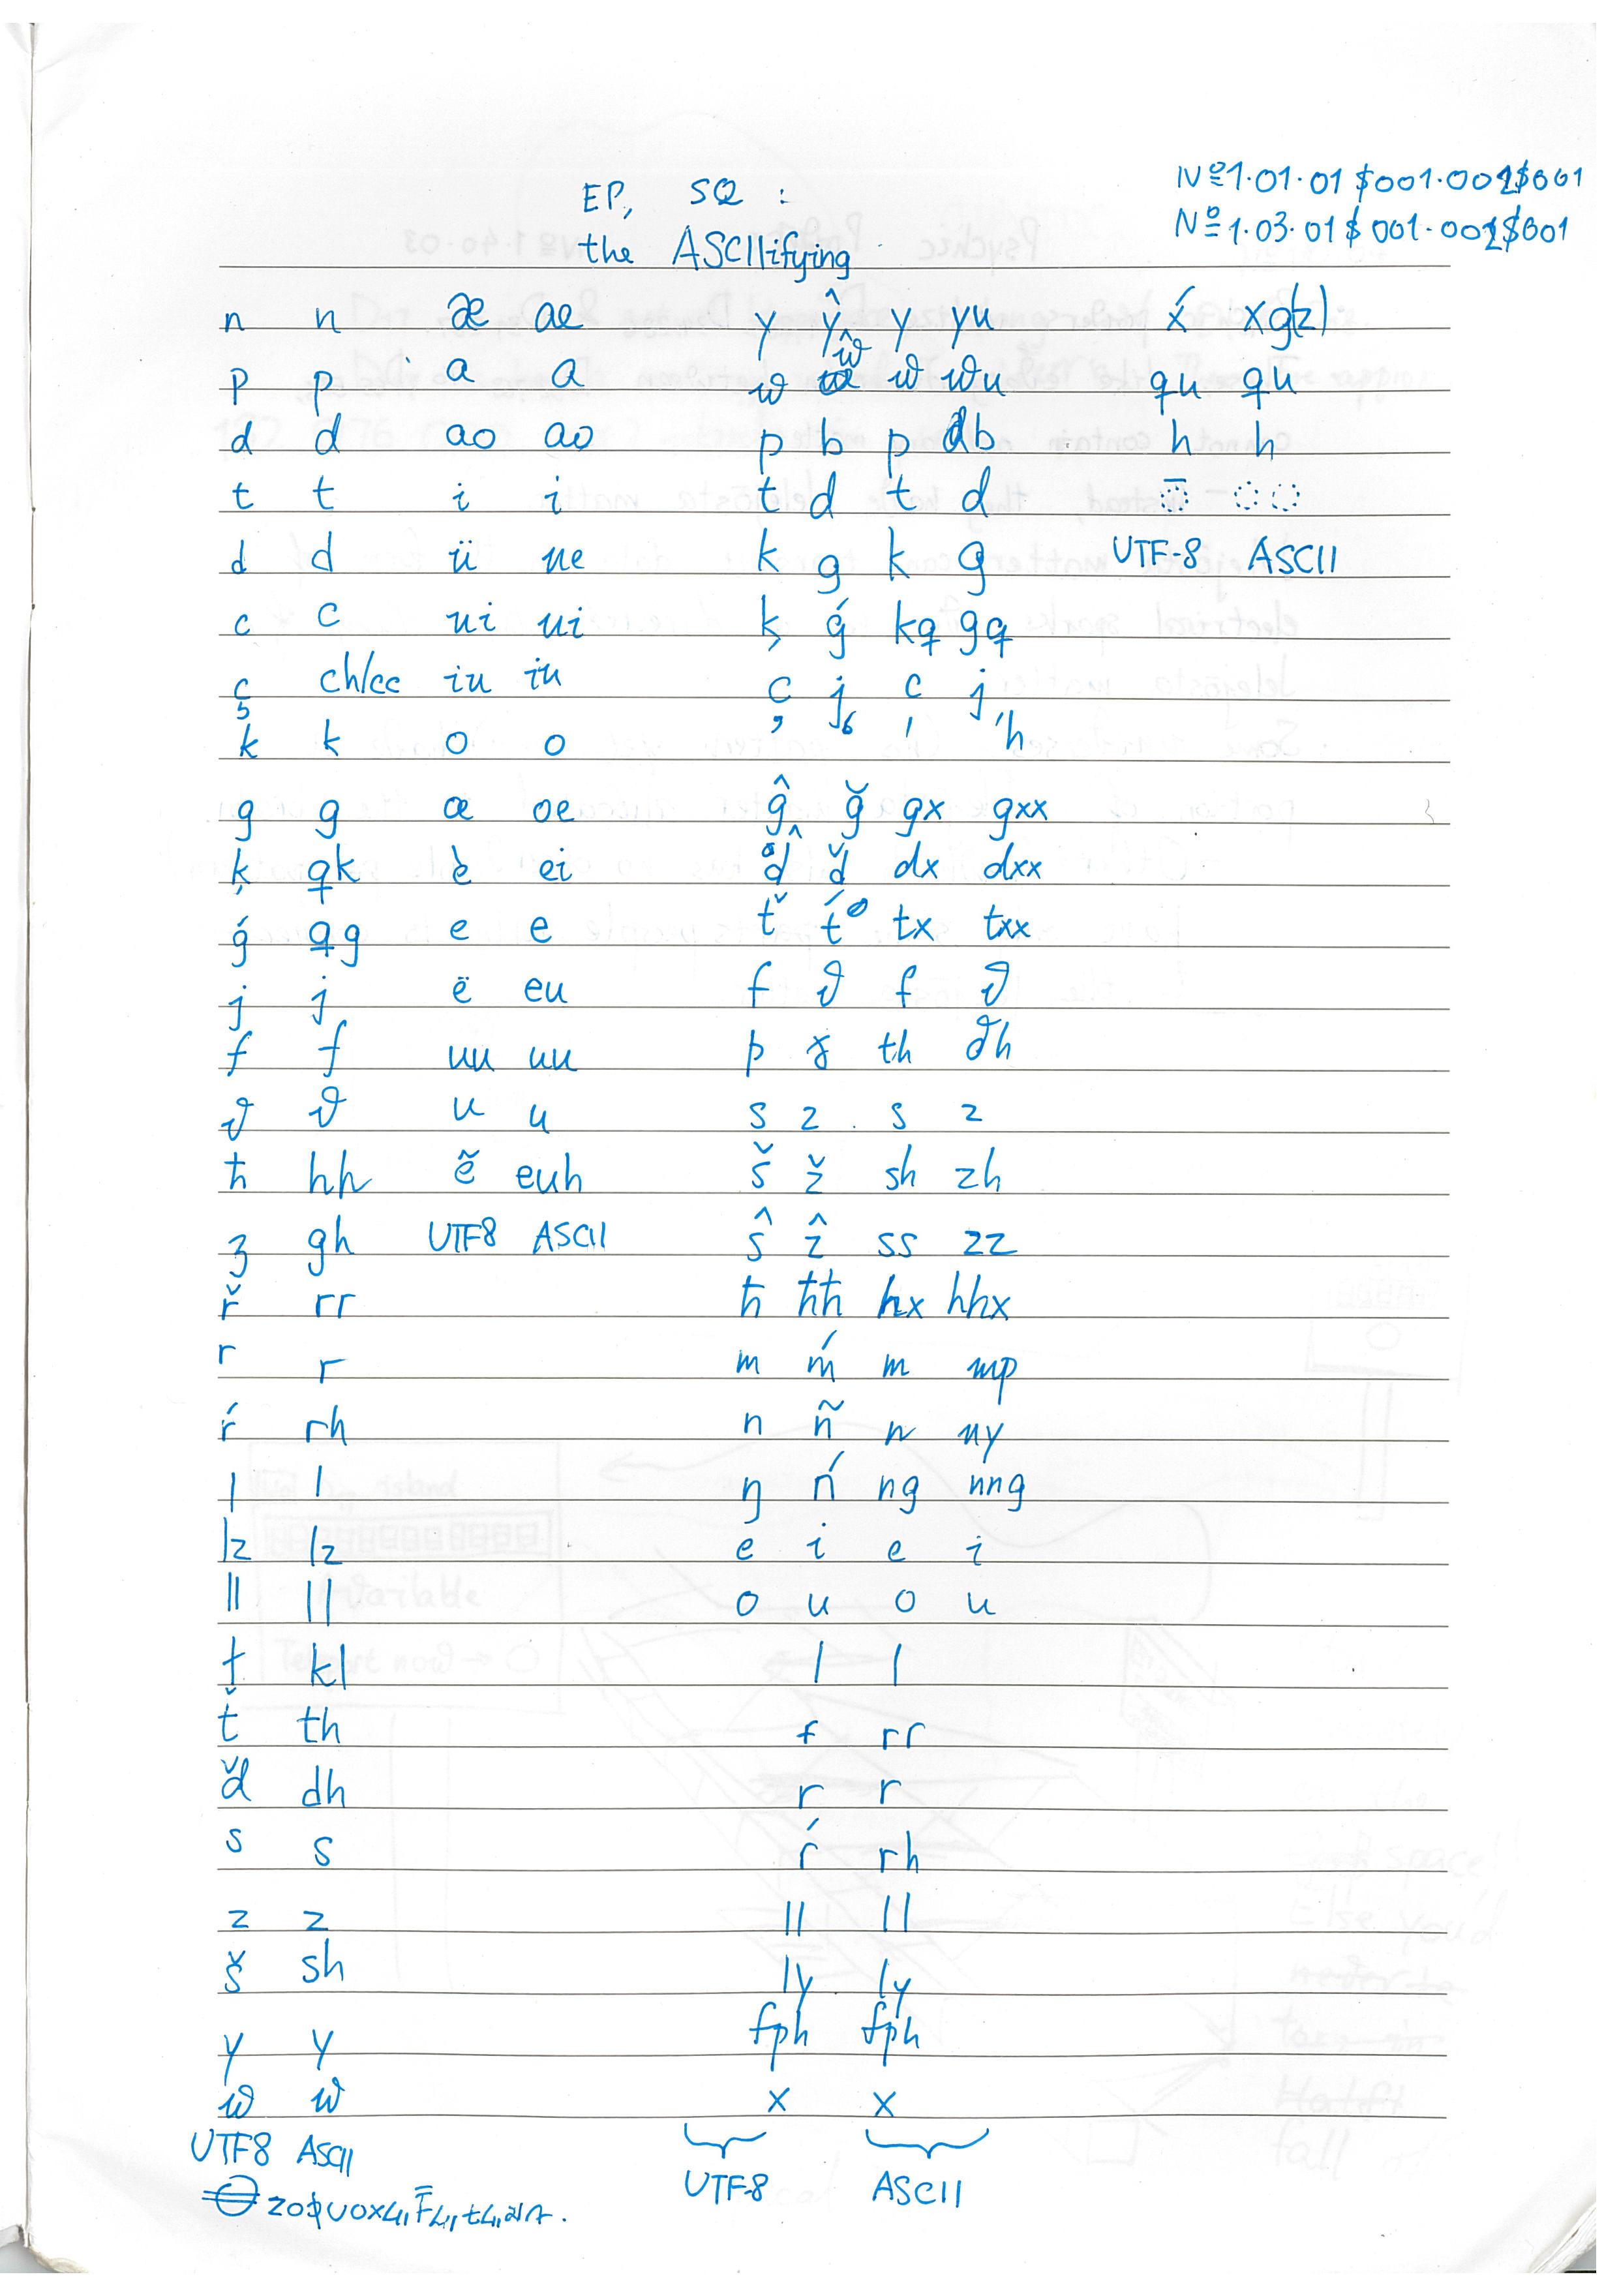 EP, SQ :
the ASCIIifying
Nº1.01.01 $001.001$001
Nº1.03.01 $001.001$001
n n æ ae y ŷ y yu ẋ xg(z)
p p a a w ŵ w wu qu qu
d d ao ao p b p b h h
t t i i t d t d ◌̄ ◌◌
d d ü ue k g k g UTF-8 ASCII
c c ui ui ķ ǵ kq gq
ç ch/cc iu iu c j c j
k k o o , 'h
g g œ oe ĝ ğ gx gxx
ķ qk è ei d̂ ď dx dxx
ǵ qg e e ť t́ tx txx
j j ë eu f v f v
f f uu uu þ ɣ th vh
v v u u s z s z
ħ hh ẽ euh š ž sh zh
ʒ gh UTF8 ASCII ŝ ẑ ss zz
ř rr ħ ħħ hx hhx
r r m ḿ m mp
ŕ rh n ñ n ny
l l ŋ ń ng nng
lz lz e i e i
ll ll o u o u
ł kl l l
ť th ɍ rr
ď dh r r
s s ŕ rh
z z ll ll
š sh ly ly
y y fph fph
w w x x
UTF8 ASCII UTF-8 ASCII